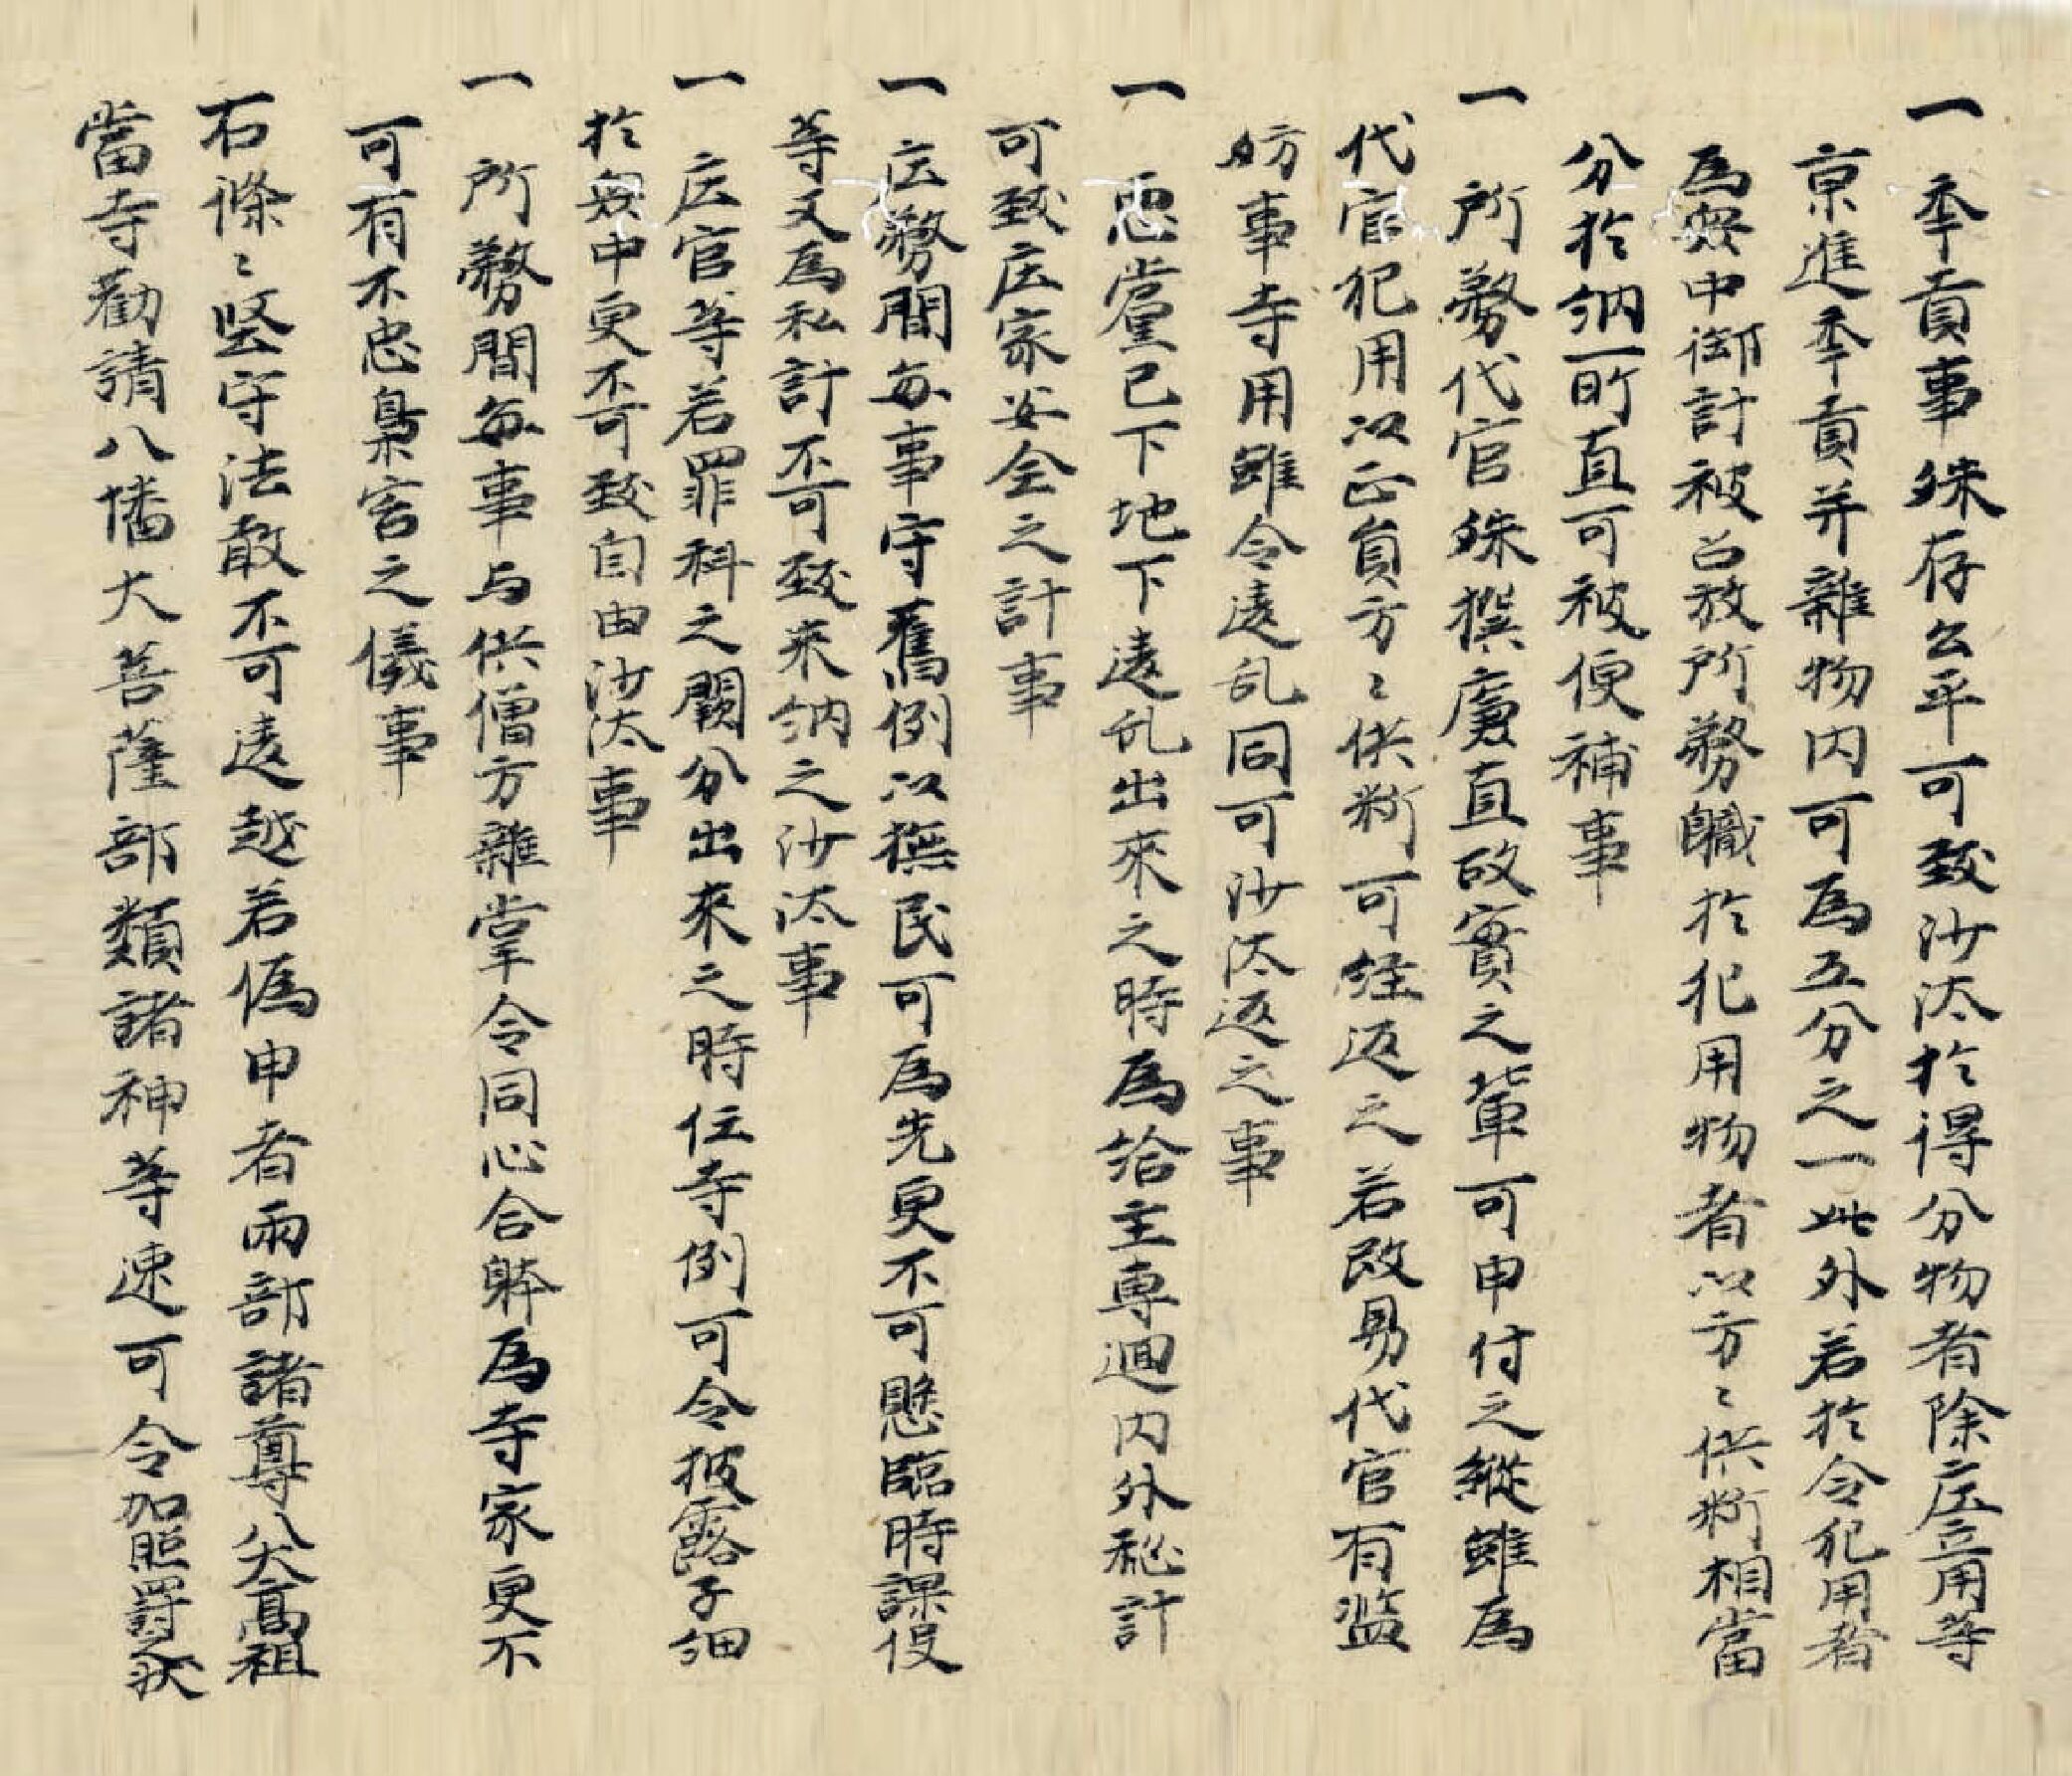 一 年貢事殊存公平可致沙汰於得分物者除庄立用等
京進年貢并雑物内可為五分之一此外若於令犯用者
為衆中御計被召放所務職於犯用物者以方々供料相當
分於納所直可被便補事
一 所務代官殊撰廉直故實之輩可申付之縱雖為
代官犯用以正員方々供料可経返之若改易代官有濫
妨事寺用雖令違乱同可沙汰返之事
一 悪黨已下地下違乱出來之時為給主専廻内外秘計
可致庄家安全之計事
一 庄務間毎事守舊例以撫民可為先更不可懸臨時課役
等又為私計不可致未納之沙汰事
一 庄官等若罪科之闕分出來之時任寺例可令披露子細
於衆中更不可致自由沙汰事
一 所務間毎事与供僧方雑掌令同心合躰為寺家更不
可有不忠梟害之儀事
右條々堅守法敢不可違越若偽申者兩部諸尊八大高祖
當寺勸請八幡大菩薩部類諸神等速可令加照罸之状